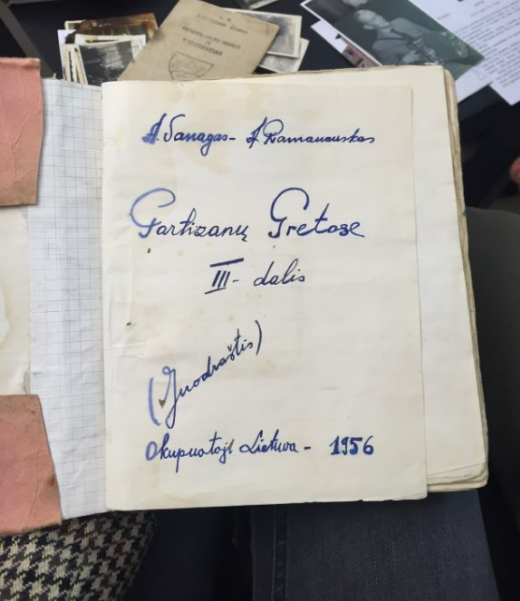 A. Vanagas - A Ramanauskas
Partizanų Gretose
III - dalis
(Juodraštis)
Okupuotoji Lietuva - 1956